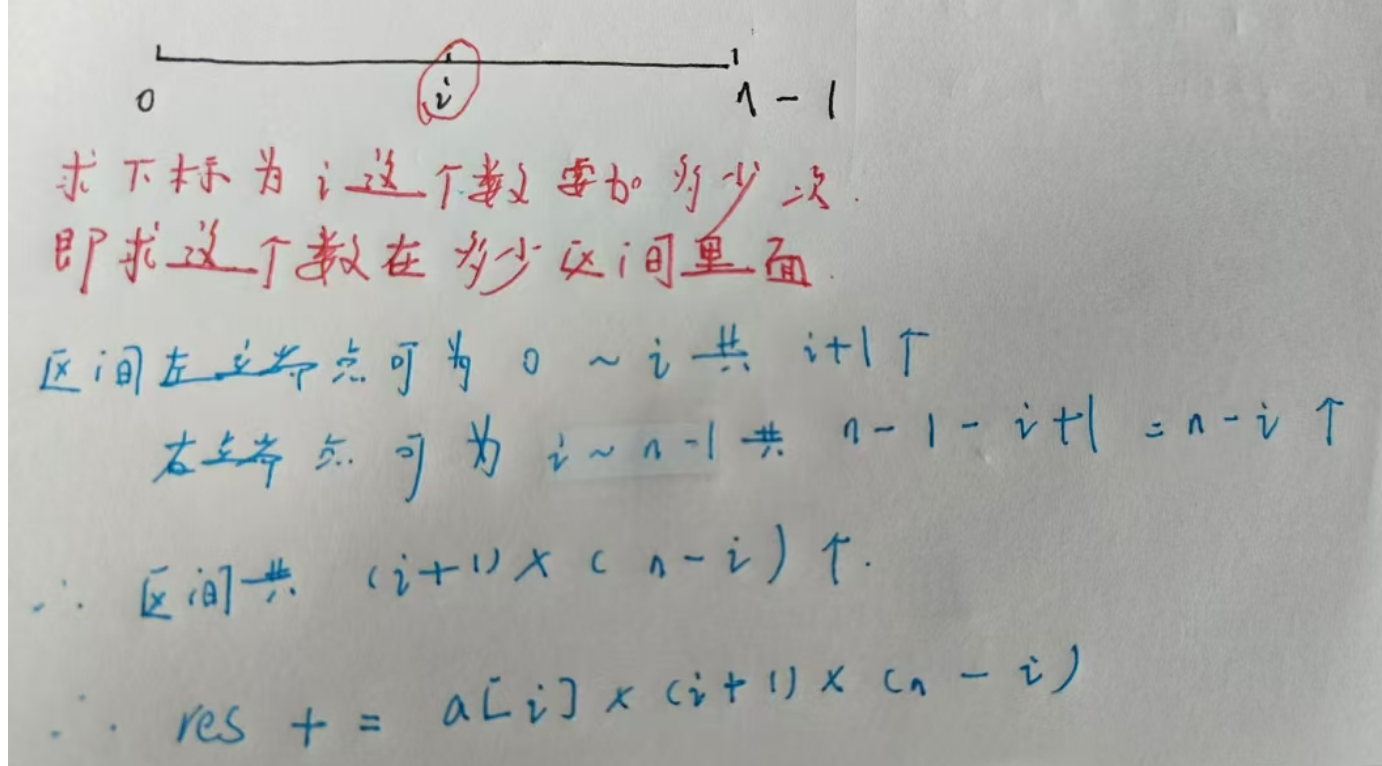 0 i n-1
求下标为i这个数要加多少次.
即求这个数在多少区间里面.
区间左端点可为 0 ~ i 共 i+1个
右端点可为 i ~ n-1 共 n-1-i+1 = n-i 个
∴ 区间共 (i+1) × (n-i) 个.
∴ res += a[i] × (i+1) × (n-i)